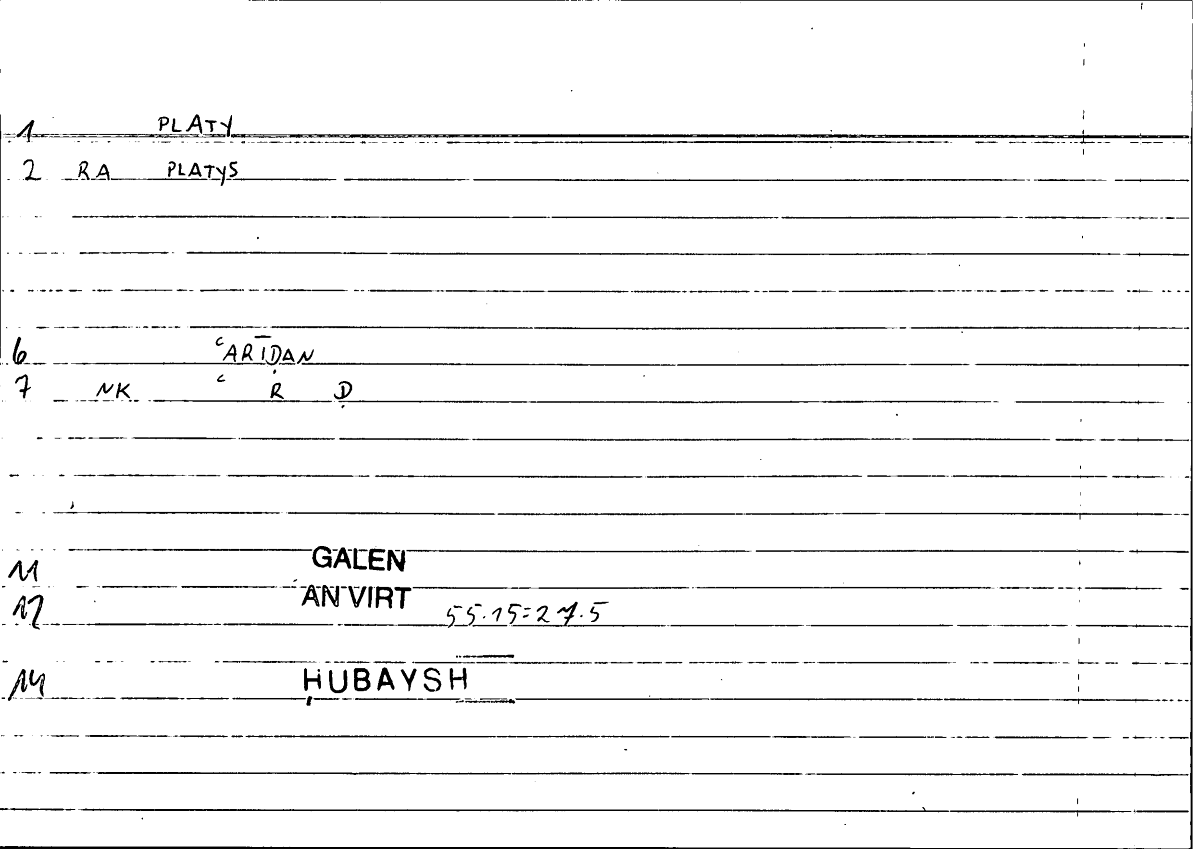 1 PLATY
2 RA PLATYS
6 ʿARĪḌAN
7 NK ʿ R Ḍ
11 GALEN
12 AN VIRT 55.15=27.5
14 ḤUBAYSH